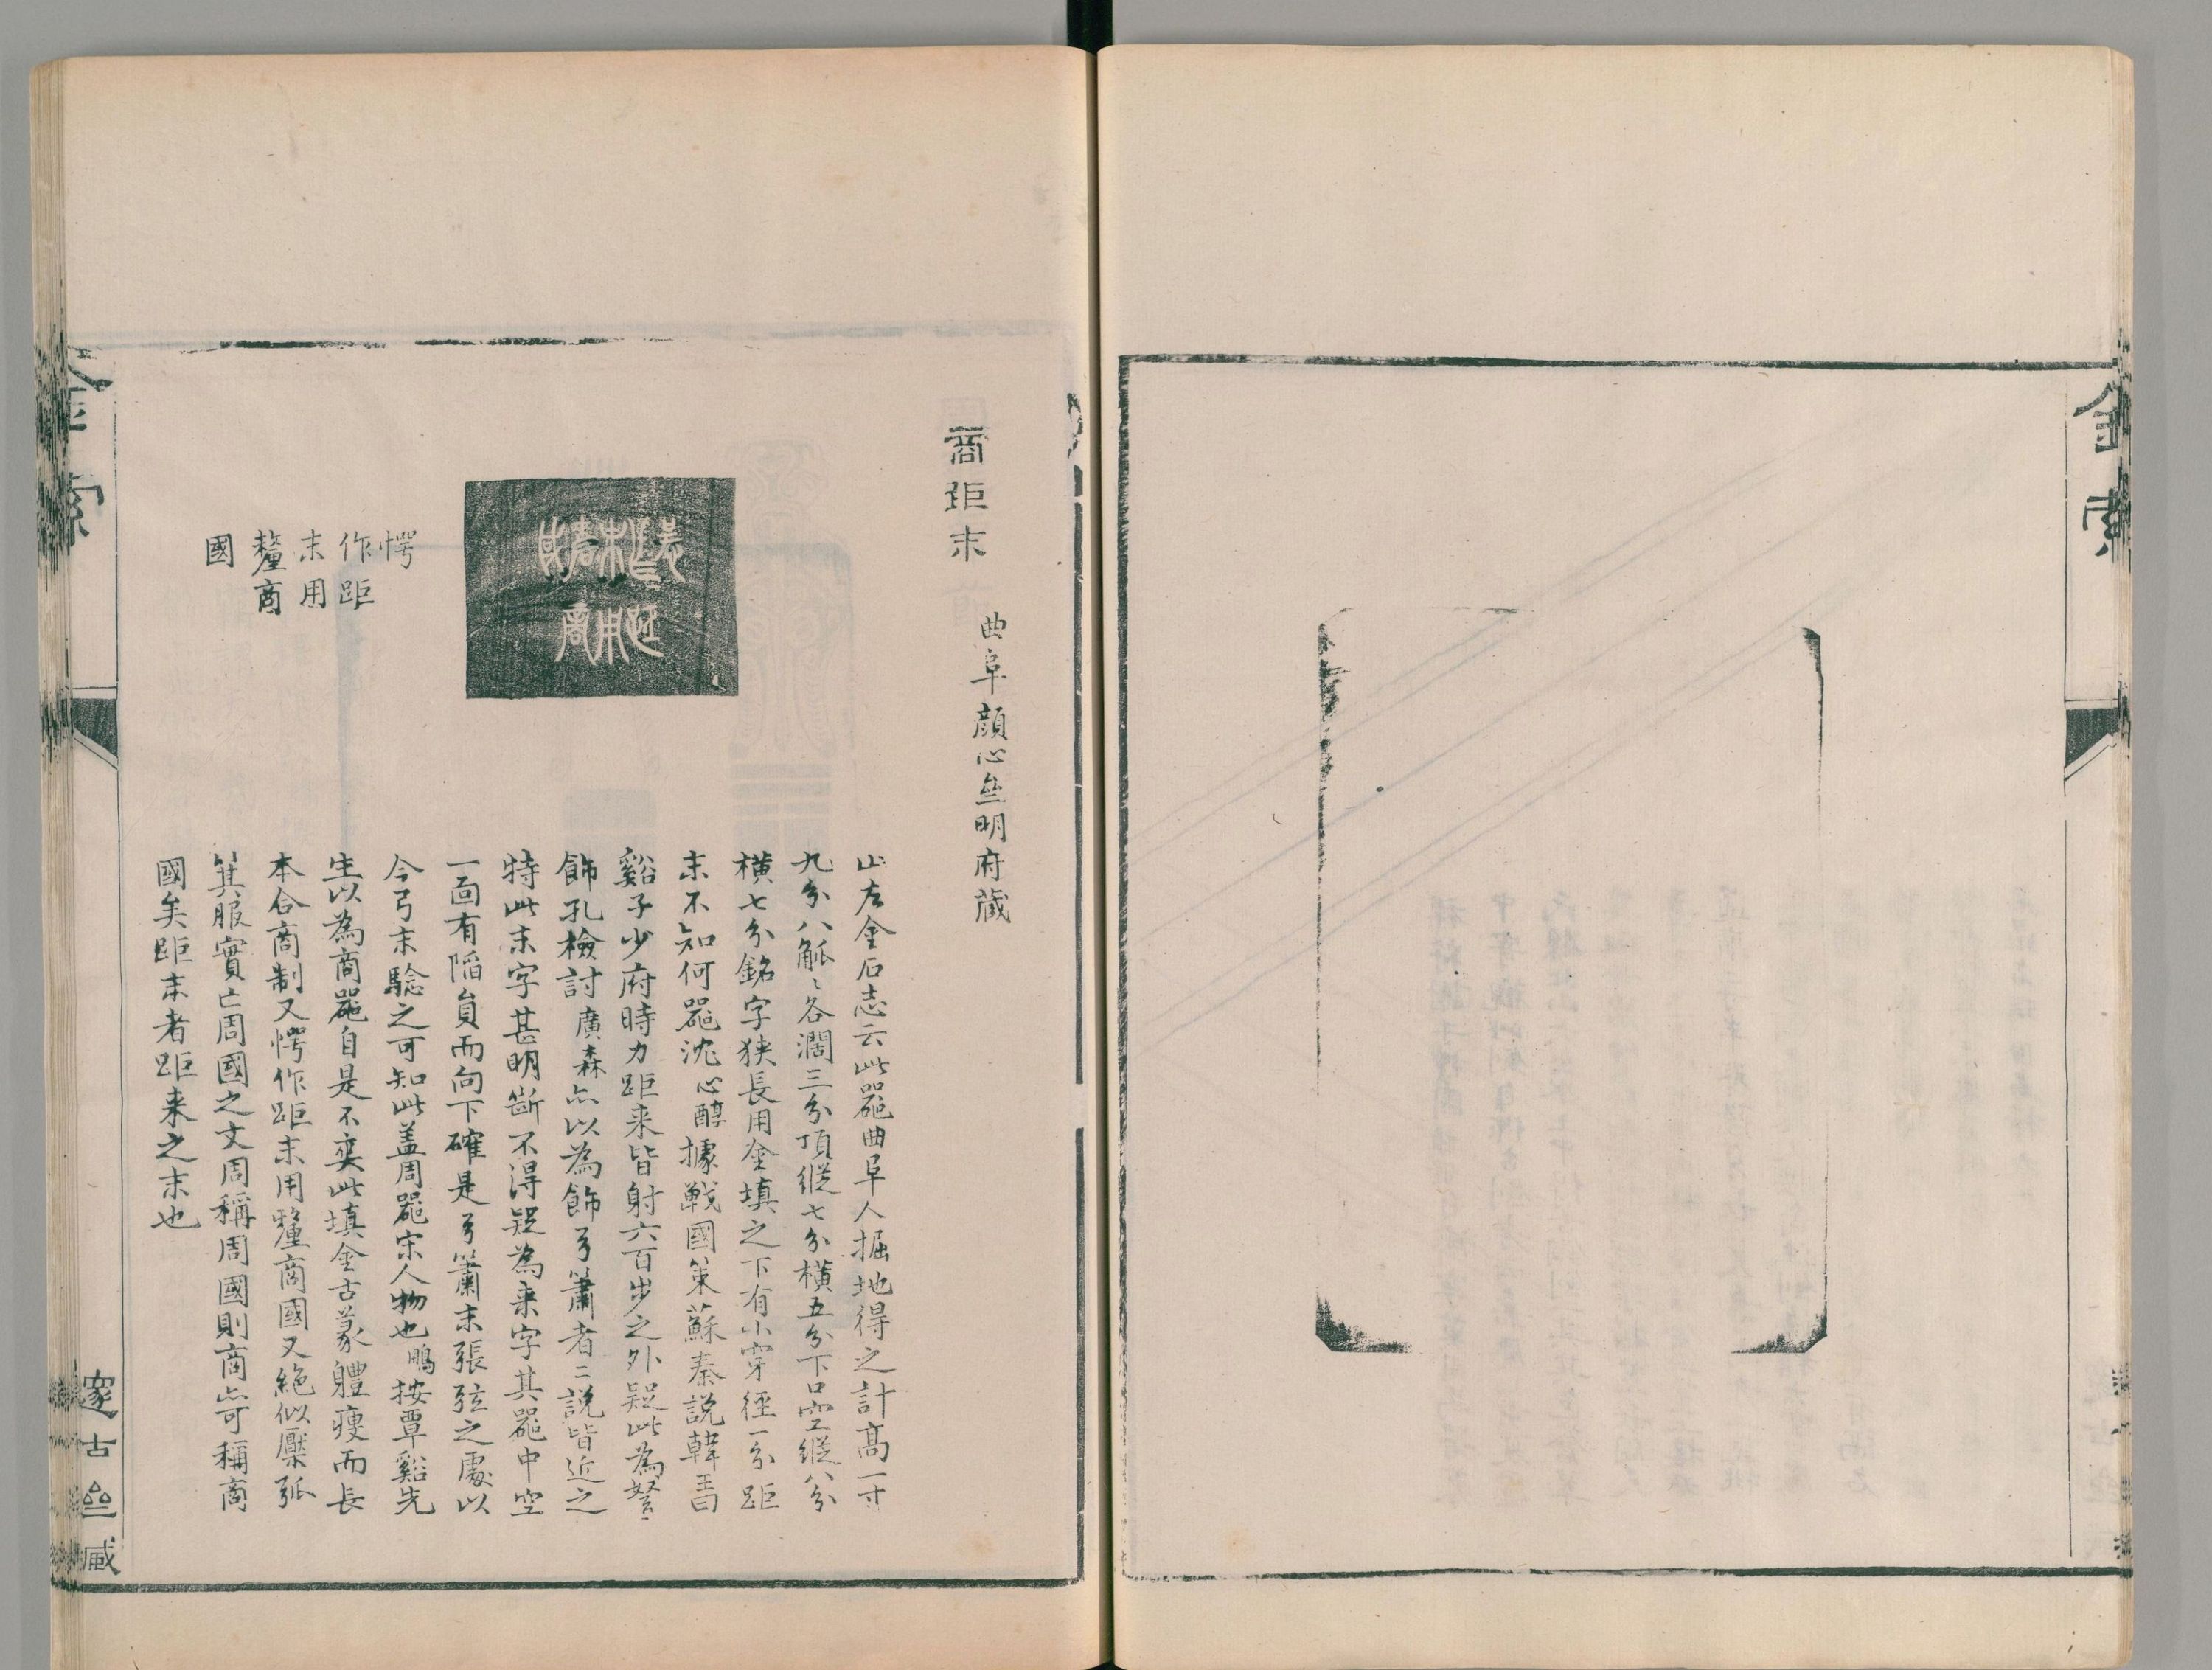 金索
商距末
曲阜顔心亝明府蔵
愕
作距
末用
釐商
國
山左金石志云此器曲阜人掘地得之計高一寸
九分八觚〻各濶三分頂縱七分橫五分下口空縱八分
橫七分銘字狹長用金填之下有小穿徑一分距
末不知何器沈心醇據戰國策蘇秦説韓王曰
谿子少府時力距来皆射六百步之外疑此為弩
飾孔檢討廣森亦以為飾弓簫者二説皆近之
特此末字甚明斷不得疑為来字其器中空
一靣有陷負而向下確是弓簫末張弦之處以
今弓末驗之可知此盖周器宋人物也鵬按覃谿先
生以為商器自是不爽此填金古篆軆瘦而長
本合商制又愕作距末用釐商國又絶似檿弧
箕服實亡周國之文周稱周國則商亦可稱商
國矣距末者距来之末也
金索
邃古亝藏